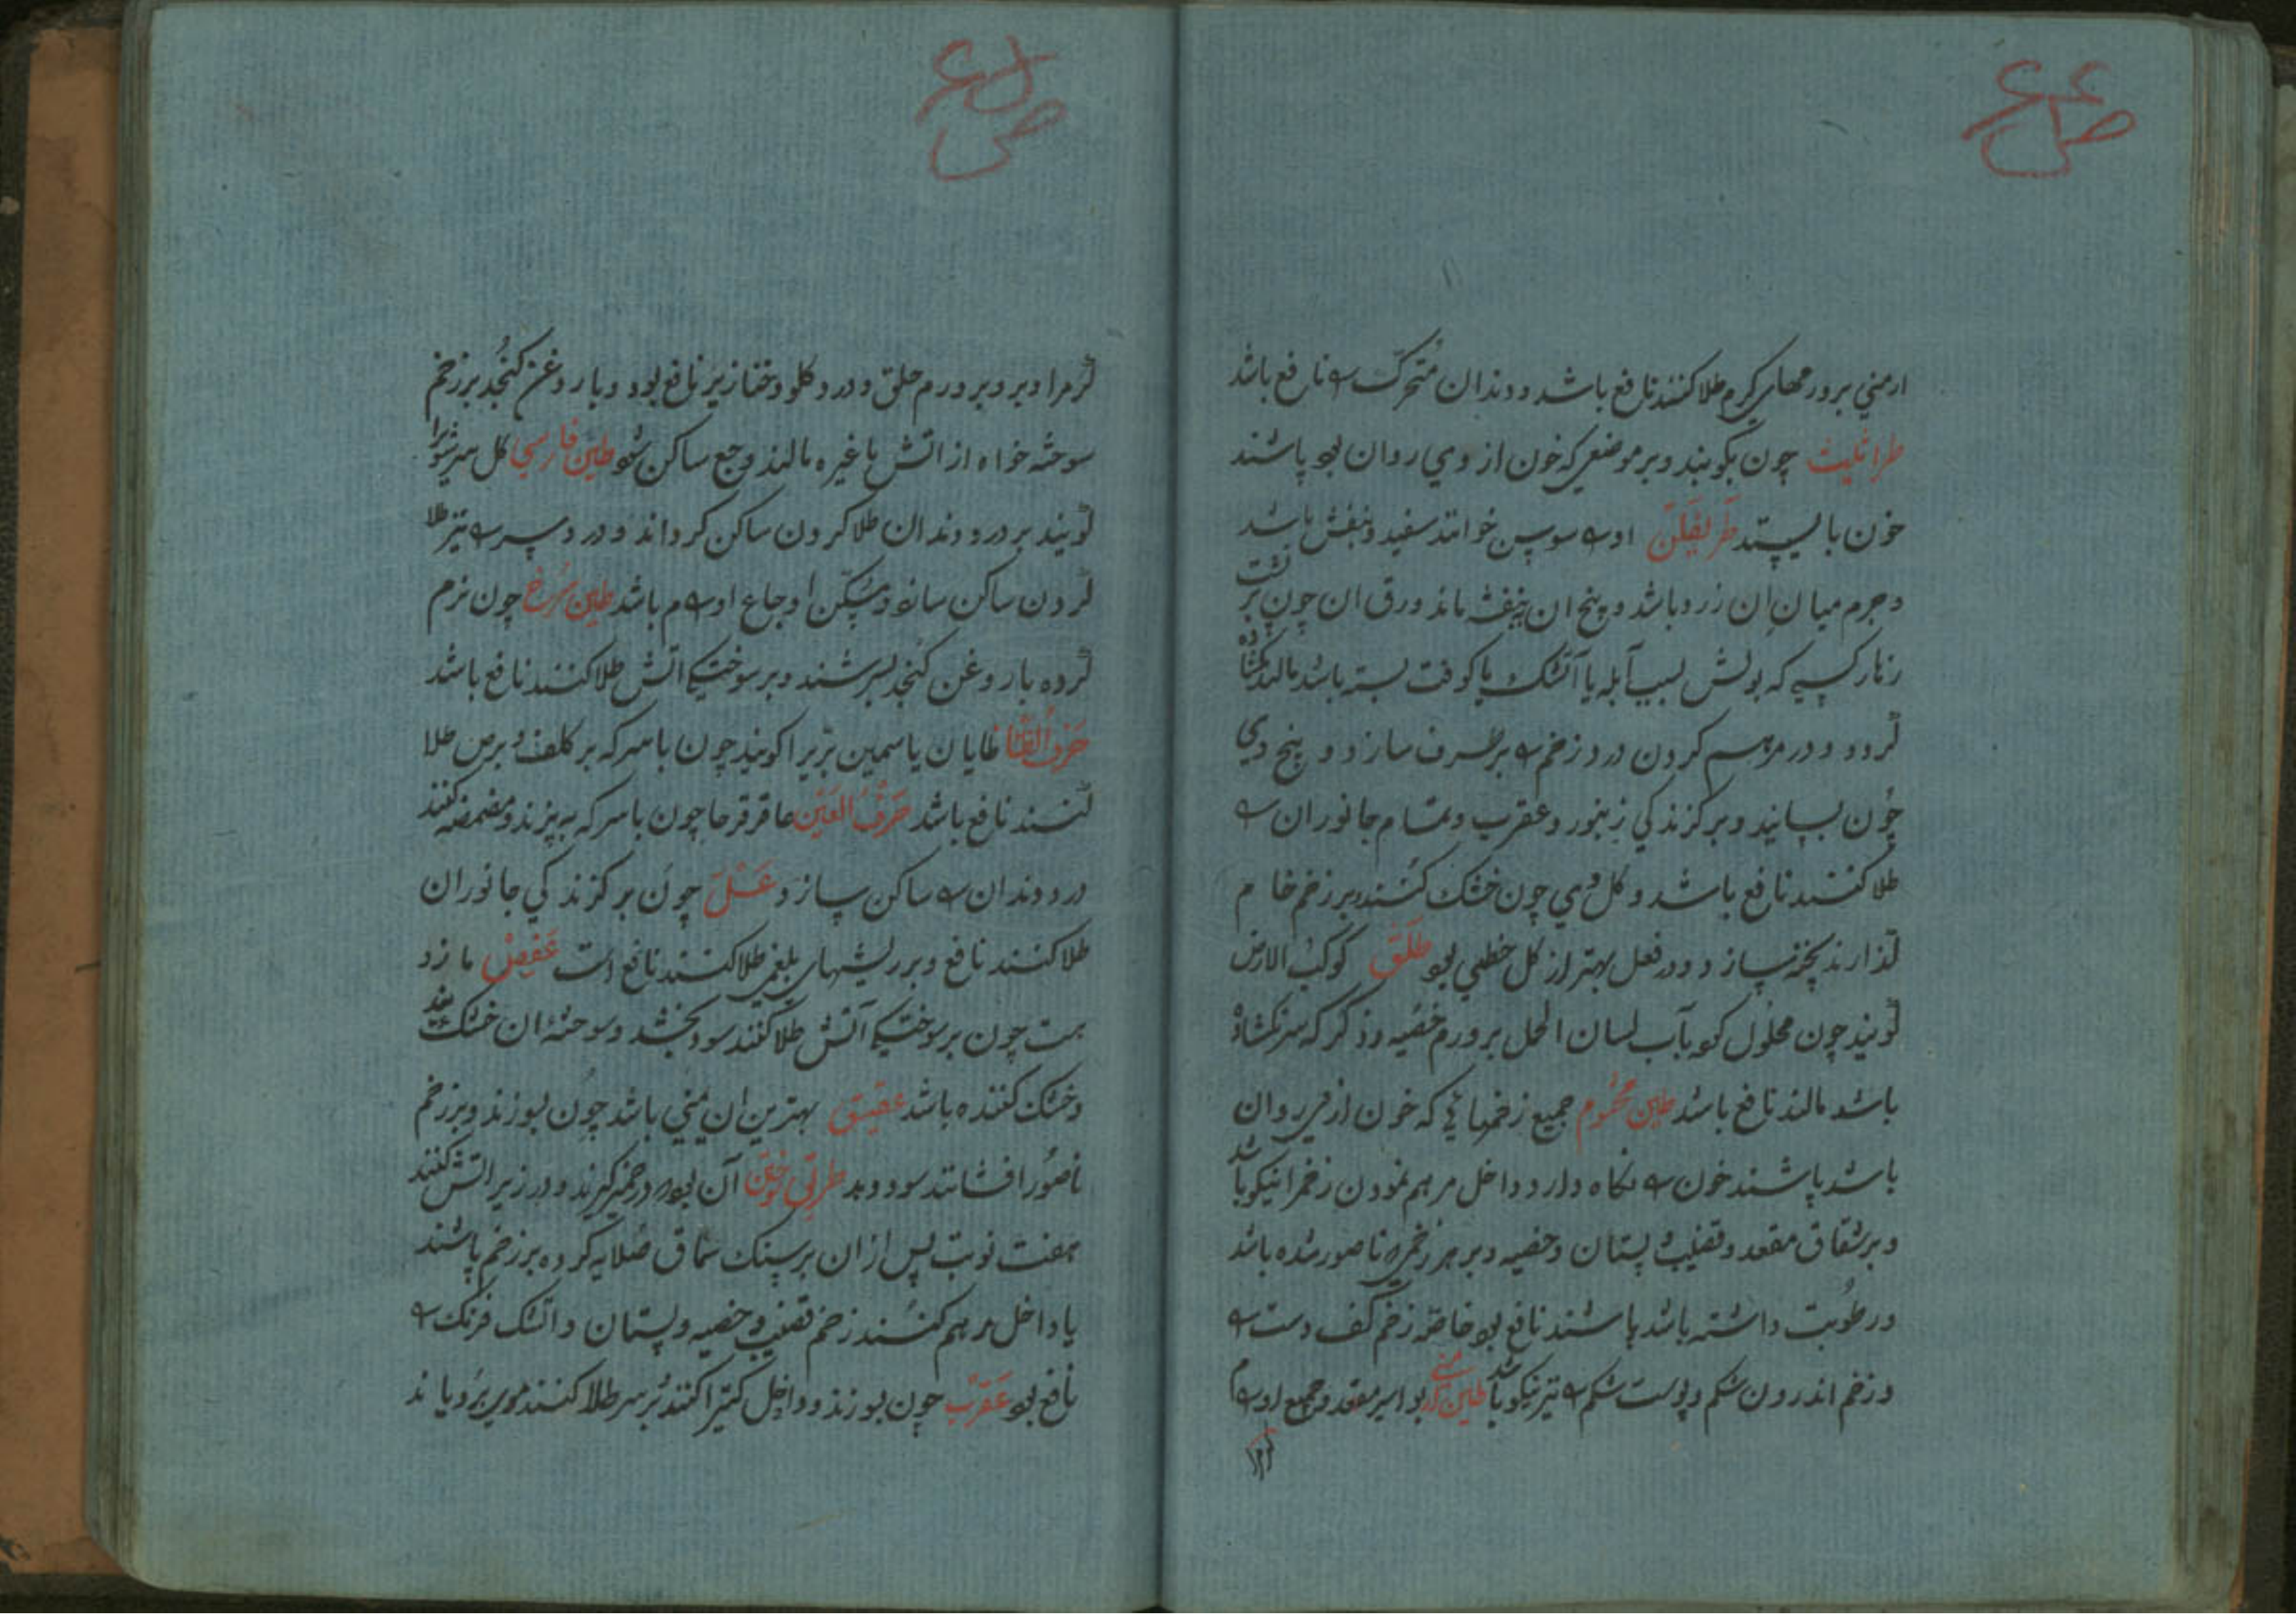 ارمني برورمهای کرم طلا کنند نافع باشد و دندان متحرک را نافع باشد
طراثیث چون بکوبند و بر موضعی که خون از وی روان بود پاشند
خون باز ایستد طریفلن او را سوسن خوانند سفید و بنفش باشد
و جرم میان ان زرد باشد و بیخ ان ببنفشه ماند ورق ان چون بر
زهار کسی که بولش بسبب آبله یا آتشک یا کوفت بسته باشد مالند کشاده
کردد و در مرهم کردن درد زخم را برطرف سازد و بیخ وی
چون بسایند و بر کزندکی زنبور و عقرب و تمام جانوران را
طلا کنند نافع باشد و کل وی چون خشک کنند و بر زخم خام
گذارند پخته سازد و در فعل بهتر از کل خطمی بود طلق کوکب الارض
گویند چون محلول کو بآب لسان الحمل بر ورم خصیه و ذکر که سرنکشاده
باشد مالند نافع باشد طین مختوم جمیع زخمهایی که خون از وی روان
باشد پاشند خون را نکاه دارد و داخل مرهم نمودن زخم را نیکو باشد
و بر شقاق مقعد و قضیب و پستان و خصیه و بر هر زخمی که ناصور شده باشد
و رطوبت داشته باشد پاشند نافع بود خاصه زخم کف دست را
و زخم اندرون شکم و پوست شکم را نیز نیکو باشد طین ارمنی بواسیر مقعد و جمیع اورام
گرم را
گرم را و بر ورم حلق و درد کلو و خنازیر نافع بود و با روغن کنجد بر زخم
سوخته خواه از اتش یا غیره مالند وجع ساکن شود طین فارسی کل سرشو را
گویند بر درد دندان طلا کردن ساکن کرداند و درد سر را نیز طلا
کردن ساکن سازد و مسکن اوجاع اورام باشد طین سرخ چون نرم
کرده با روغن کنجد بسرشند و بر سوختگی اتش طلا کنند نافع باشد
یاسمین بری را کویند چون با سرکه بر کلف و برص طلا
کنند نافع باشد عاقرقرحا چون با سرکه بپزند و مضمضه کنند
درد دندان را ساکن سازد عسل چون بر کزندکی جانوران
طلا کنند نافع و بر ریشهای بلغمی طلا کنند نافع است عفص مازو
ست چون بر سوختگی آتش طلا کنند سود بخشد و سوخته ان خشک بند
و خشک کننده باشد عقیق بهترین ان یمنی باشد چون بسوزند و بر زخم
ناصور افشانند سود دهد آن بود که در خمیر کیرند و در زیر اتش کنند
هفت نوبت پس از ان بر سنک سماق صلایه کرده بر زخم پاشند
یا داخل مرهم کنند زخم قضیب و خصیه و پستان و اتشک فرنک را
نافع بود عقرب چون بسوزند و داخل کتیرا کنند بر سر طلا کنند موی برویاند